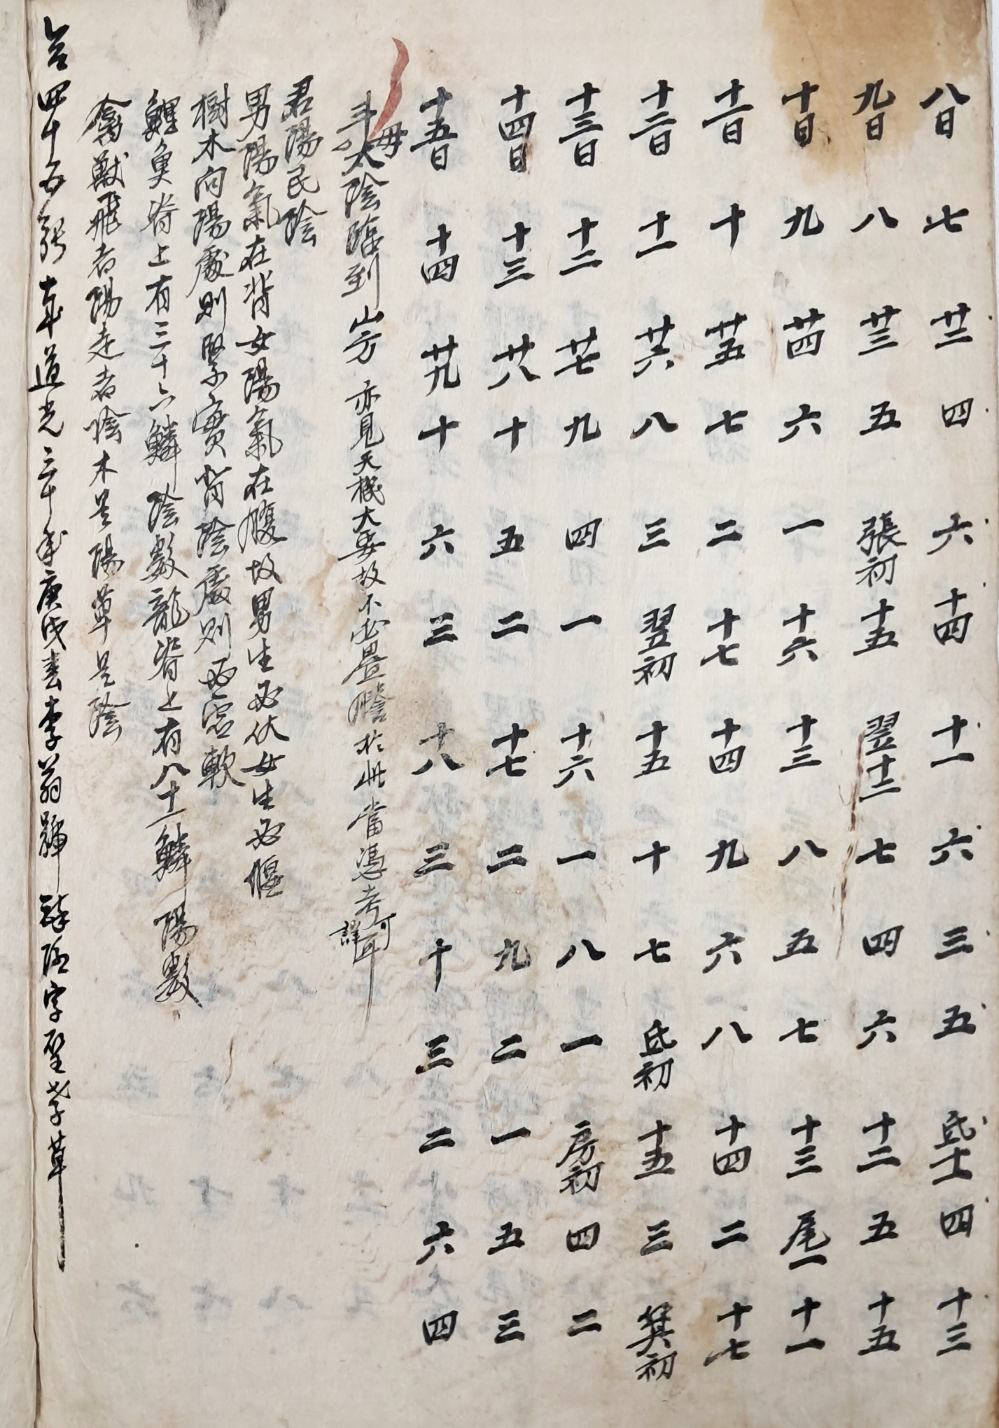 八日 七 廿二 四 六 十四 十一 六 三 五 氐十一 四 十三
九日 八 廿三 五 張初 十五 翌十二 七 四 六 十二 五 十五
十日 九 廿四 六 一 十六 十三 八 五 七 十三 尾一 十一
十一日 十 廿五 七 二 十七 十四 九 六 八 十四 二 十七
十二日 十一 廿六 八 三 翌初 十五 十 七 氐初 十五 三 箕初
十三日 十二 廿七 九 四 一 十六 一 八 一 房初 四 二
十四日 十三 廿八 十 五 二 十七 二 九 二 一 五 三
十五日 十四 廿九 十 六 三 十八 三 十 三 二 六 四
斗母太陰臨到山方 亦見天機大要故不必疊謄於此當憑考可詳耳
君陽民陰
男陽氣在背女陽氣在腹故男生必伏女生必偃
樹木向陽處則堅實背陰處則必虛軟
鯉魚脊上有三十六鱗 陰數龍脊上有八十一鱗 陽數
禽獸飛者陽走者陰木是陽草是陰
合四十五張 道光三十年庚戌 李 字 草